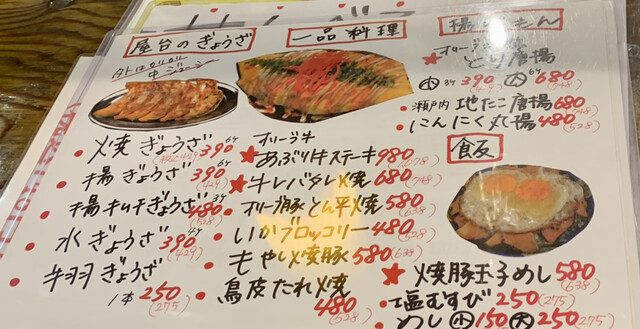 屋台のぎょうざ
外はカリカリ
中ジューシー
焼ぎょうざ 6ケ 390 (税込429)
揚ぎょうざ 6ケ 390 (429)
揚キムチぎょうざ 3ケ 480 (528)
水ぎょうざ 4ケ 390 (429)
手羽ぎょうざ
1本 250 (275)
一品料理
オリーブ牛
★あぶり牛ステーキ 980 (1078)
★牛レバタレ焼 680 (748)
オリーブ豚とん平焼 580 (638)
いかブロッコリー 480 (528)
もやし焼豚 580 (638)
鳥皮たれ焼
480 (528)
揚
★オリーブ
とり唐揚
小 3ケ 390 (429) 大 6ケ 680 (748)
瀬戸内 地たこ唐揚 680 (748)
にんにく丸揚 480 (528)
食飯
★焼豚玉子めし 580 (638)
塩むすび 250 (275)
めし 小 150 大 250 (275)